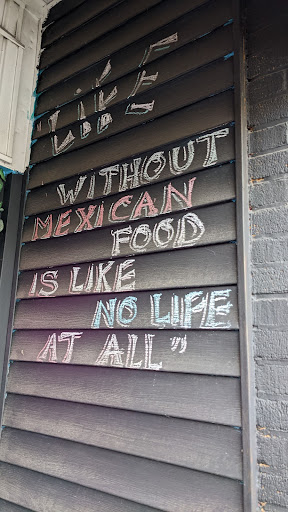 "LIFE
WITHOUT
MEXICAN
FOOD
IS LIKE
NO LIFE
AT ALL"